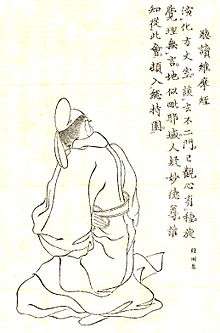 晚讀維摩經
演化方丈室談玄不二門已觀心有種旋
覺理無言地似毗耶城人疑妙德尊誰
知從此會頓入總持園